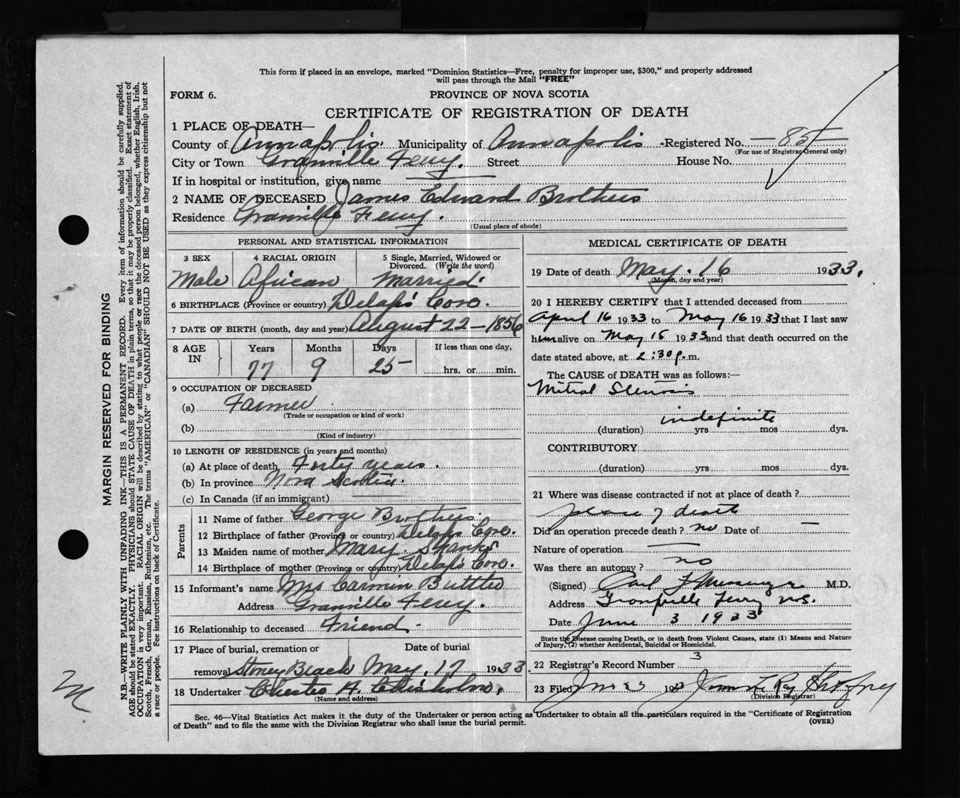 This form if placed in an envelope, marked "Dominion Statistics—Free, penalty for improper use, $300," and properly addressed
will pass through the Mail "FREE"
FORM 6. PROVINCE OF NOVA SCOTIA
CERTIFICATE OF REGISTRATION OF DEATH
1 PLACE OF DEATH—
County of Annapolis. Municipality of Annapolis Registered No. 85
(For use of Registrar General only)
City or Town Granville Ferry. Street House No.
If in hospital or institution, give name
2 NAME OF DECEASED James Edward Brothers
Residence Granville Ferry.
(Usual place of abode)
PERSONAL AND STATISTICAL INFORMATION
3 SEX 4 RACIAL ORIGIN 5 Single, Married, Widowed or
Divorced. (Write the word)
Male African Married.
6 BIRTHPLACE (Province or country) Delaps Cove.
7 DATE OF BIRTH (month, day and year) August 22 - 1856
8 AGE IN Years Months Days If less than one day,
77 9 25 hrs. or min.
9 OCCUPATION OF DECEASED
(a) Farmer
(Trade or occupation or kind of work)
(b)
(Kind of industry)
10 LENGTH OF RESIDENCE (in years and months)
(a) At place of death Forty years.
(b) In province Nova Scotia
(c) In Canada (if an immigrant)
Parents
11 Name of father George Brothers.
12 Birthplace of father (Province or country) Delaps Cove.
13 Maiden name of mother Mary
14 Birthplace of mother (Province or country) Delaps Cove.
15 Informant's name Mrs Carmin Buttler
Address Granville Ferry.
16 Relationship to deceased Friend.
17 Place of burial, cremation or Date of burial
removal Stoney Beach May. 17 1933
18 Undertaker Charles A. Chisholm.
(Name and address)
MEDICAL CERTIFICATE OF DEATH
19 Date of death May. 16 1933.
(Month, day and year)
20 I HEREBY CERTIFY that I attended deceased from
April 16 1933 to May 16 1933 that I last saw
him alive on May 15 1933 and that death occurred on the
date stated above, at 2:30 p.m.
The CAUSE of DEATH was as follows:
Mitral Stenosis
indefinite
(duration) yrs mos dys.
CONTRIBUTORY
(duration) yrs mos dys.
21 Where was disease contracted if not at place of death?
place of death
Did an operation precede death? no Date of —
Nature of operation —
Was there an autopsy? no
(Signed) Carl F. Messenger M.D.
Address Granville Ferry N.S.
Date June 3 1933
State the Disease causing Death, or in death from Violent Causes, state (1) Means and Nature
of Injury, (2) whether Accidental, Suicidal or Homicidal.
22 Registrar's Record Number 3
23 Filed
(Division Registrar)
Sec. 46—Vital Statistics Act makes it the duty of the Undertaker or person acting as Undertaker to obtain all the particulars required in the "Certificate of Registration
of Death" and to file the same with the Division Registrar who shall issue the burial permit. (OVER)
MARGIN RESERVED FOR BINDING
N.B.—WRITE PLAINLY WITH UNFADING INK—THIS IS A PERMANENT RECORD. Every item of information should be carefully supplied.
AGE should be stated EXACTLY. PHYSICIANS should STATE CAUSE OF DEATH in plain terms, so that it may be properly classified. Exact statement of
OCCUPATION is very important. RACIAL ORIGIN will be described by stating to what people or race the deceased person belonged, whether English, Irish,
Scotch, French, German, Russian, Ruthenian, etc. The terms "AMERICAN" or "CANADIAN" SHOULD NOT BE USED as they express citizenship but not
a race or people. Fee instructions on back of Certificate.